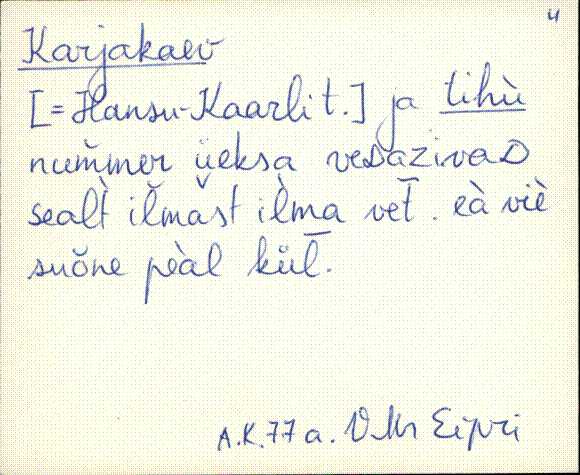 4
Karjakaev
[=Hansu-Kaarli t.] ja tihù
num̆mer üeksa vedazivad
sealt̀ iľmast iľma vet̄. eà viè
suŏne pèàl kül̄.
A.K.77 a. V.Mr Eipri